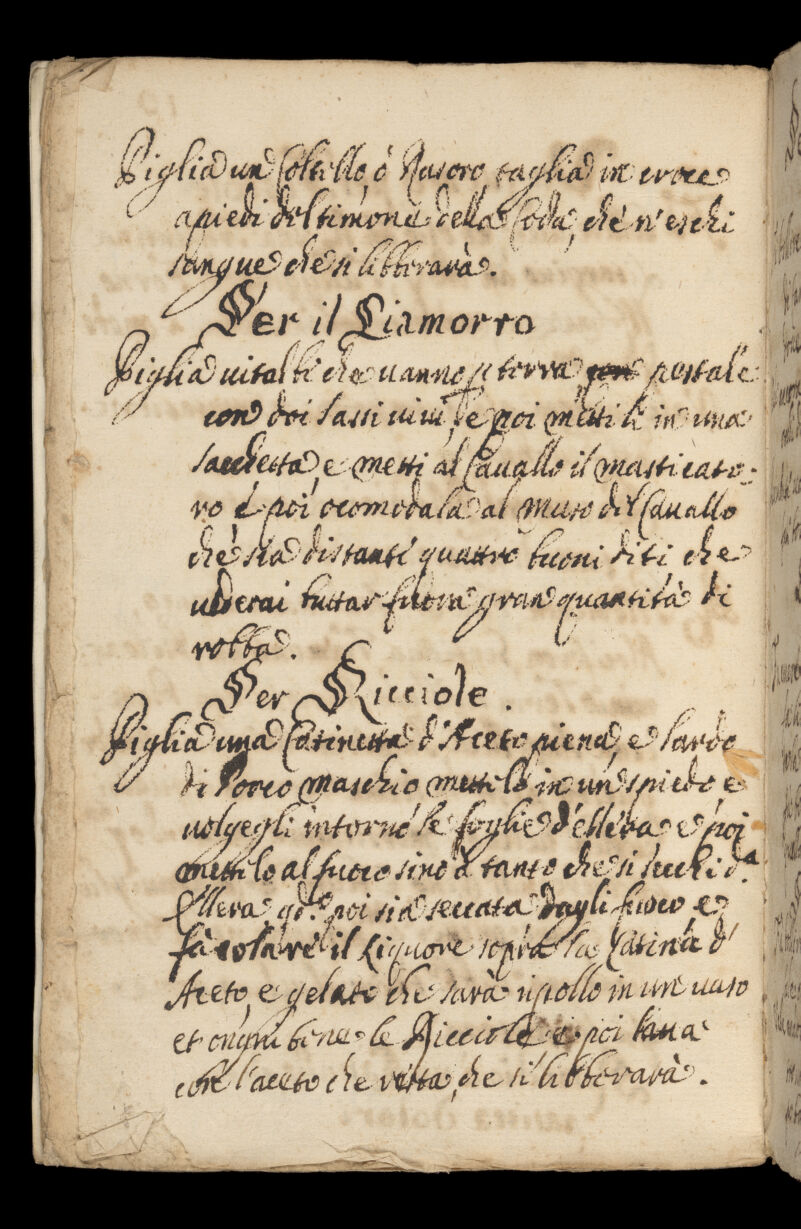 Piglia un Coltello, ò Rasoro, taglia in croce
apiedi del timone della Coda, che n'eschi
sangue che si libberarà.
Per il Ciamorro
Piglia uitalbi che uanno p terra pestale
con doi sassi uiui, e poi mettile in una
sacchetta, e metti al Cauallo il masticato=
ro é poi acomodala al muso del Cauallo
che sia distanti quattro buoni diti che
uederai buttar fuora gran quantità di
robba.
Per Ricciole.
Piglia una Catinetta d'Aceto piena, e Lardo
di Porco maschio mettilo in un spiedo e
uolgegli intorno le foglie d'ellera e poi
mettilo al fuoco sino à tanto che si secchi d.ª
Ellera, qd.º poi sia seccata dagli fuoco, e
fà colare il Liquore sopra la Catina d'
Aceto, e gelato che sarà ripollo in un uaso
et ongni bene le Ricciole e poi laua
con l'aceto che resta, che si libberarà.